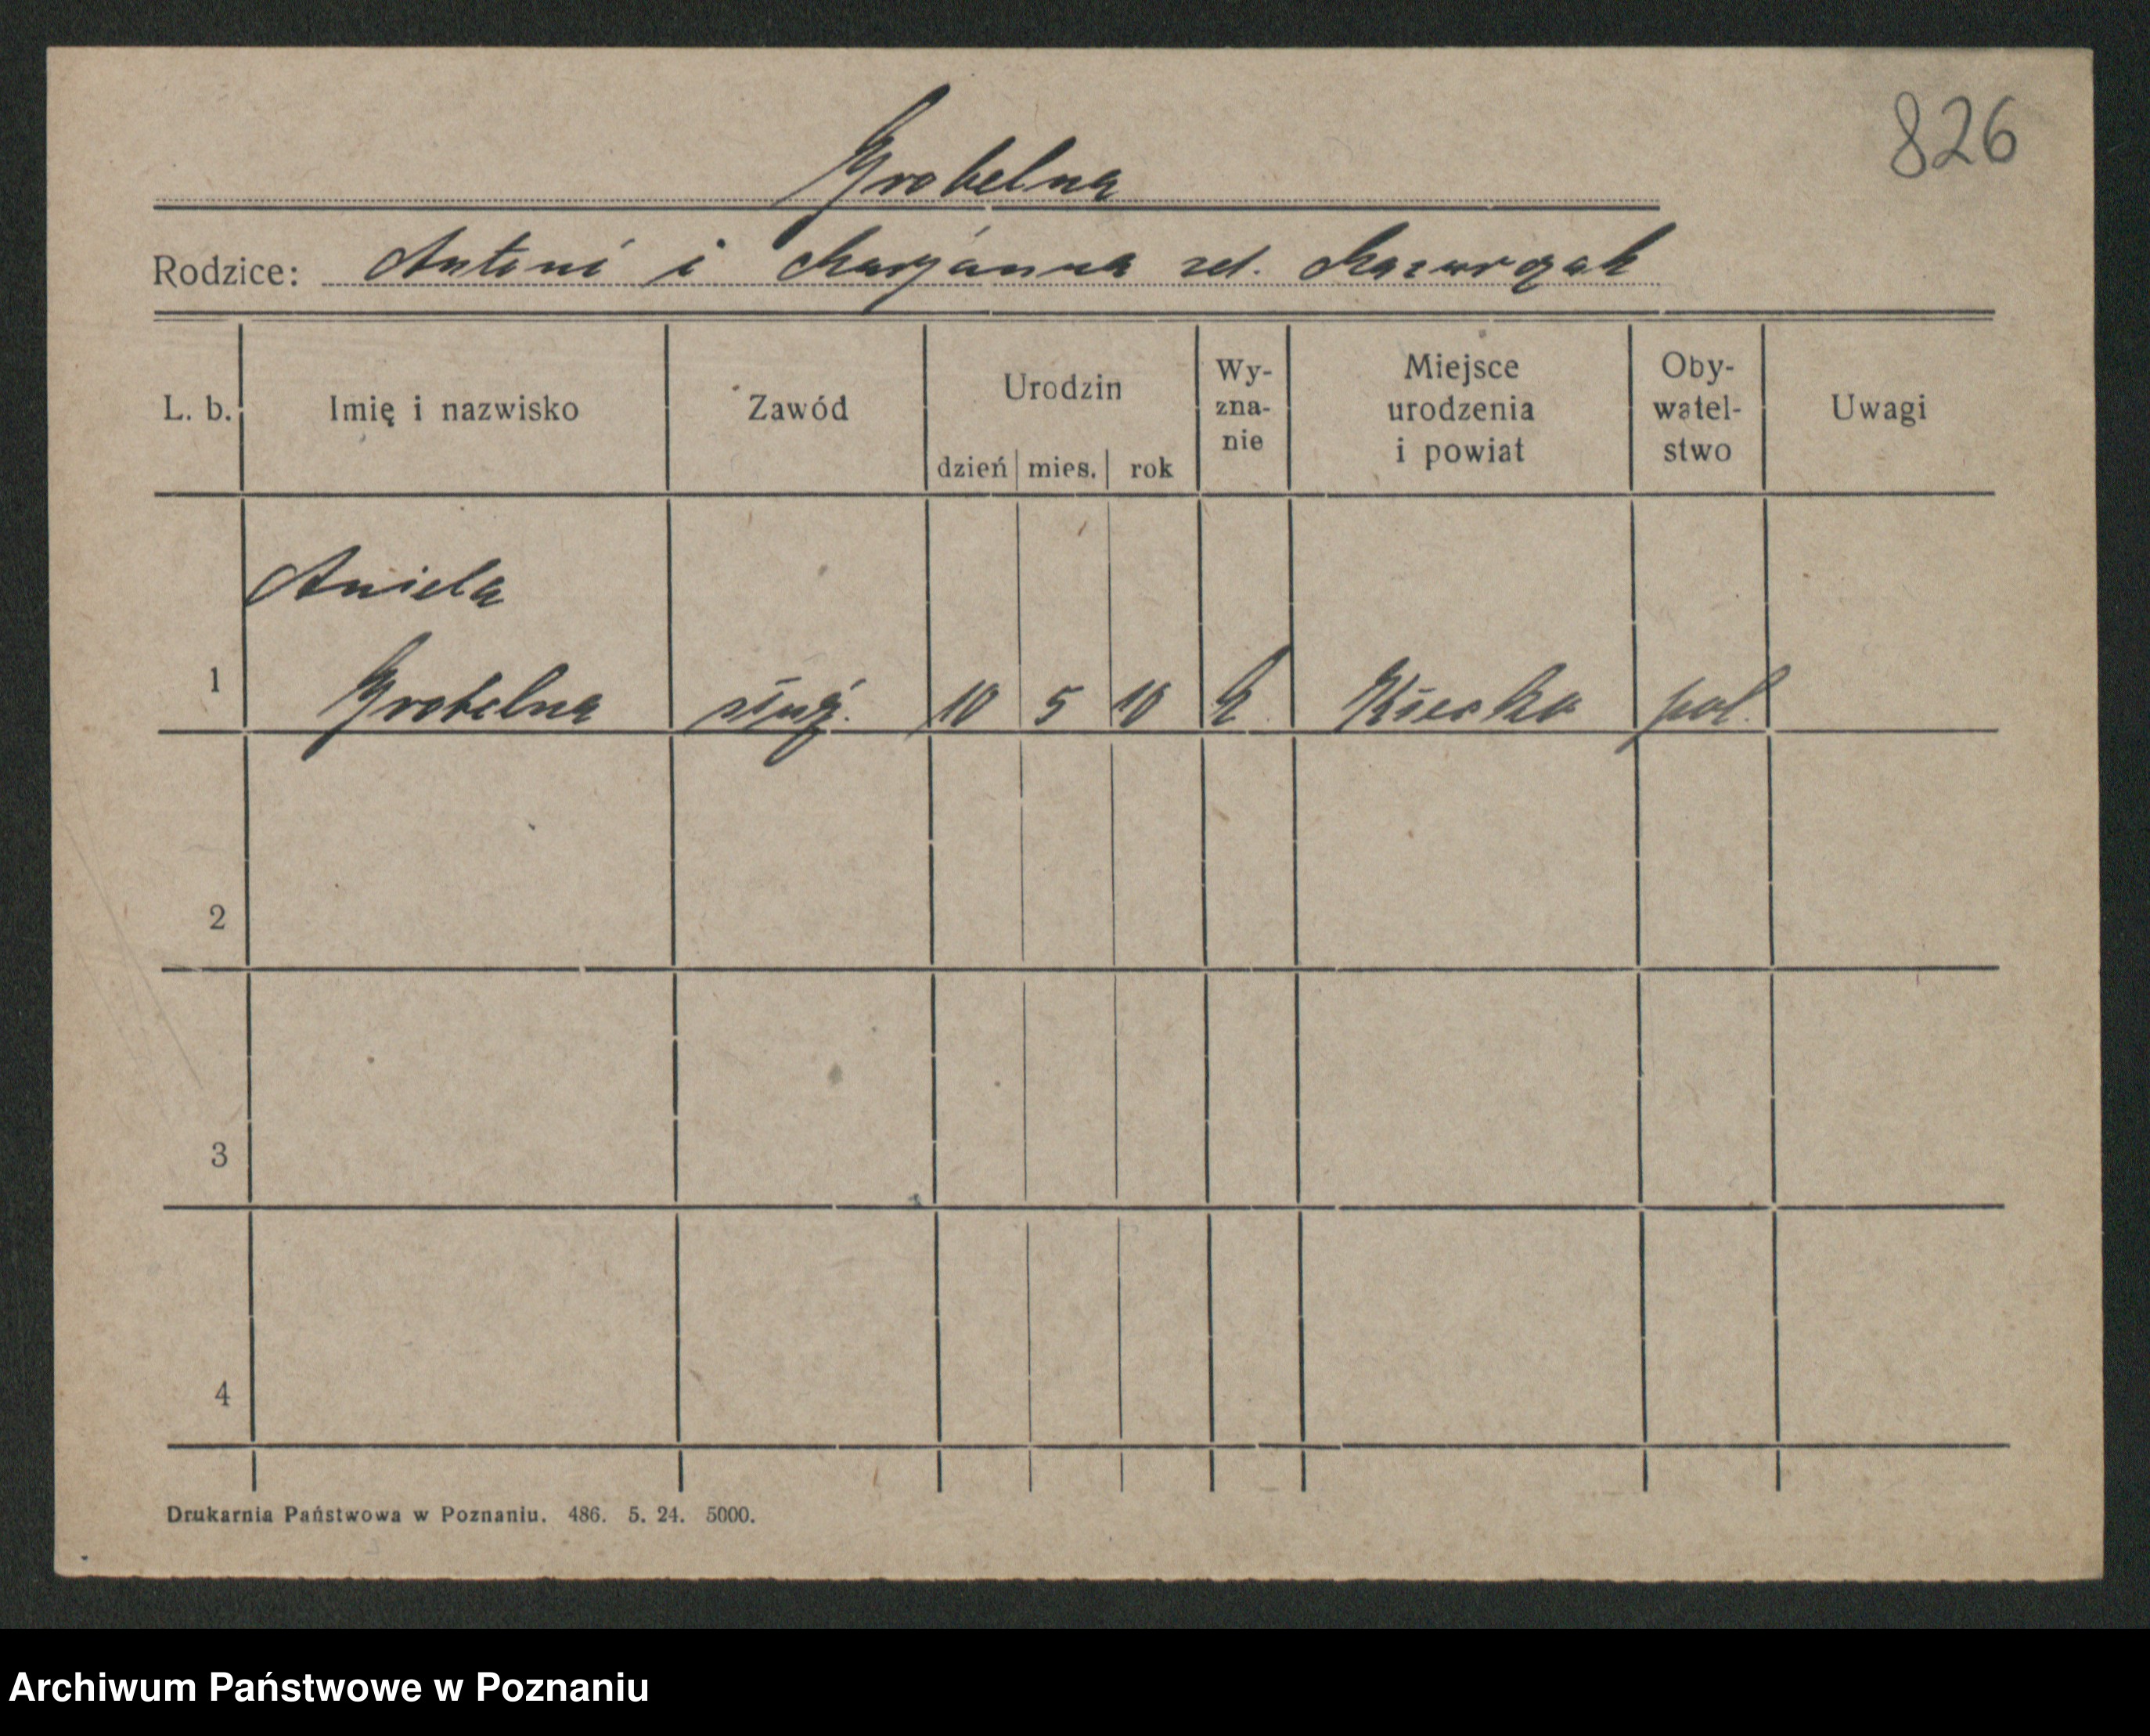 826
Grobelna
Rodzice: Antoni i Maryanna zd. Kazurczak
L. b. Imię i nazwisko Zawód Urodzin dzień mies. rok Wy-zna-nie Miejsce urodzenia i powiat Oby-watel-stwo Uwagi
Aniela
1 Grobelna służ. 10 5 10 k. pol.
2
3
4
Drukarnia Państwowa w Poznaniu. 486. 5. 24. 5000.
Archiwum Państwowe w Poznaniu